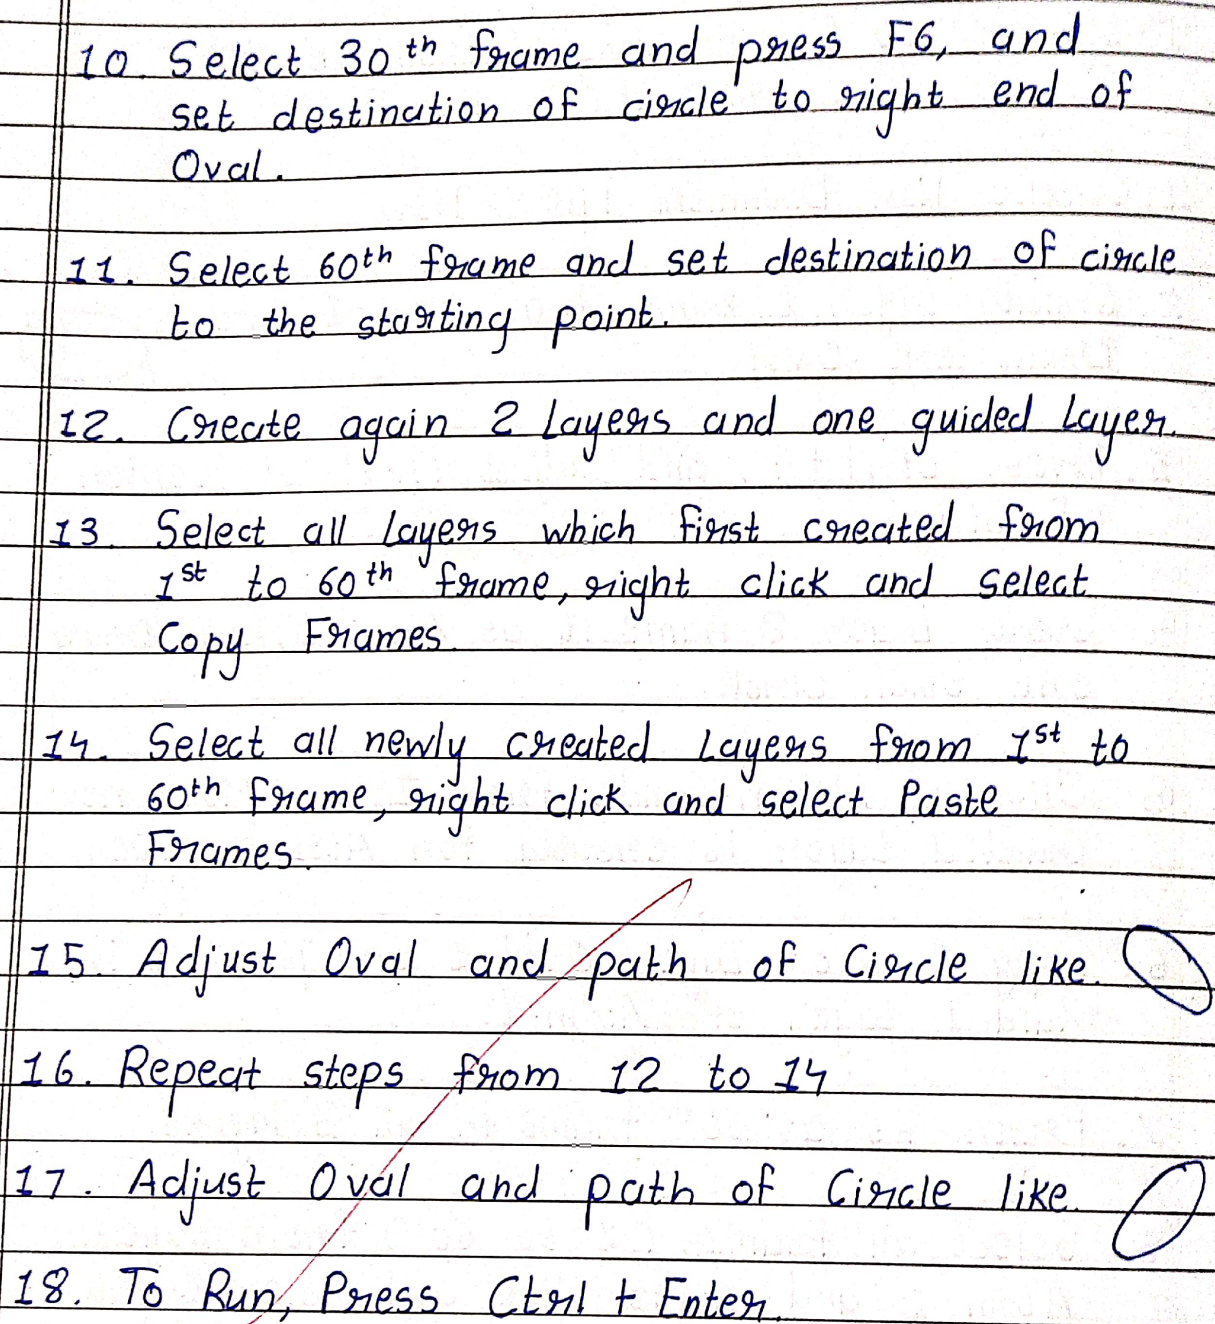 10. Select 30th frame and press F6, and
set destination of circle to right end of
Oval.
11. Select 60th frame and set destination of circle
to the starting point.
12. Create again 2 Layers and one guided Layer.
13. Select all Layers which first created from
1st to 60th frame, right click and select
Copy Frames.
14. Select all newly created Layers from 1st to
60th frame, right click and select Paste
Frames.
15. Adjust Oval and path of Circle like.
16. Repeat steps from 12 to 14
17. Adjust Oval and path of Circle like.
18. To Run, Press Ctrl + Enter.